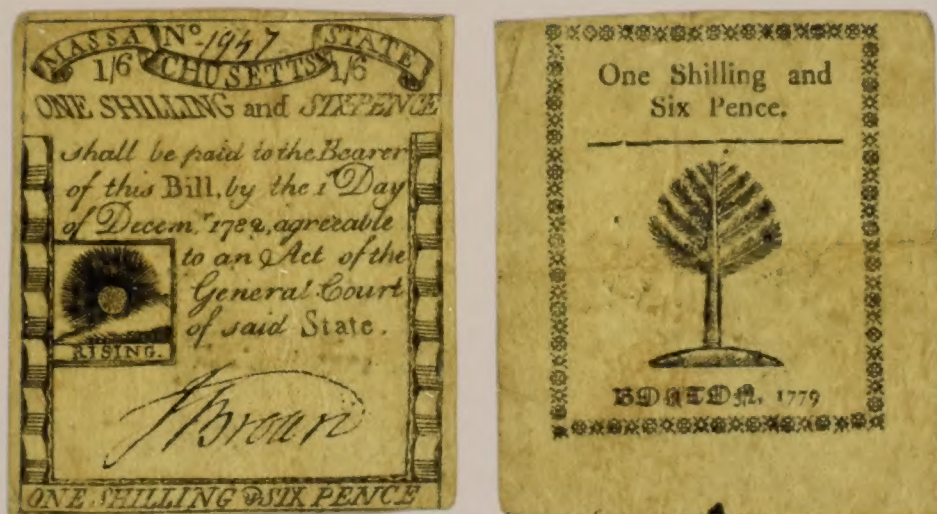 MASSA Nº 1947 STATE
1/6 CHUSETTS 1/6
ONE SHILLING and SIXPENCE
shall be paid to the Bearer
of this Bill, by the 1ˢᵗ Day
of Decemʳ 1782, agreeable
to an Act of the
General Court
of said State.
RISING.
J Brown
ONE SHILLING & SIX PENCE
One Shilling and
Six Pence.
BOSTON, 1779